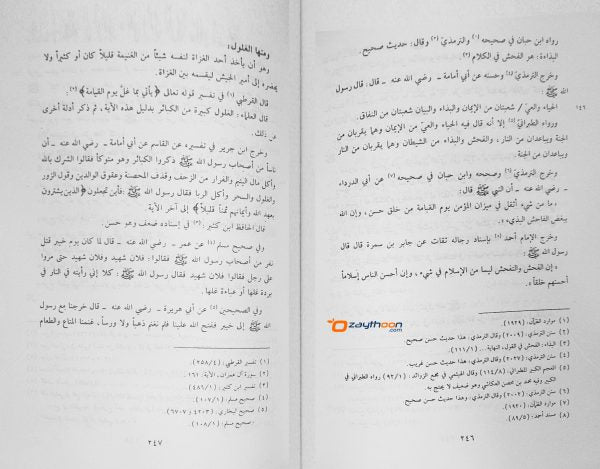 رواه ابن حبان في صحيحه (١) والترمذي (٢) وقال: حديث صحيح.
البذاءة: هو الفحش في الكلام (٣).
وخرج الترمذي (٤) وحسنه عن أبي أمامة - رضي الله عنه - قال: قال رسول
الله ﷺ:
١٤٦
الحياء والعي / شعبتان من الإيمان والبذاء والبيان شعبتان من النفاق.
ورواه الطبراني (٥) إلا أنه قال فيه الحياء والعي من الإيمان وهما يقربان من
الجنة ويباعدان من النار، والفحش والبذاء من الشيطان وهما يقربان من النار
ويباعدان من الجنة:
وخرج الترمذي (٦) وصححه وابن حبان في صحيحه (٧) عن أبي الدرداء
- رضي الله عنه - أن النبي ﷺ قال:
« ما من شيء أثقل في ميزان المؤمن يوم القيامة من خلق حسن، وإن الله
يبغض الفاحش البذيء ».
وخرج الإمام أحمد (٨) بإسناد رجاله ثقات عن جابر بن سمرة قال قال
رسول الله ﷺ:
« إن الفحش والتفحش ليسا من الإسلام في شيء، وإن أحسن الناس إسلاماً
أحسنهم خلقاً ».
(١) موارد القرآن: (١٩٢٩).
(٢) سنن الترمذي: (٢٠٠٩) وقال الترمذي: هذا حديث حسن صحيح.
(٣) البذاء: الفحش في القول، النهاية... (١١١/١).
(٤) سنن الترمذي: (٢٠٢٧) وقال الترمذي: هذا حديث حسن غريب.
(٥) المعجم الكبير للطبراني: (١١٤/٨) وقال الهيثمي في مجمع الزوائد. (٩٢/١) رواه الطبراني في
الكبير وفيه محمد بن محصن العكاشي وهو ضعيف لا يحتج به.
(٦) سنن الترمذي: (٢٠٠٢) وقال الترمذي: وهذا حديث حسن صحيح
(٧) موارد القرآن: (١٩٢٠).
(٨) مسند أحمد: (٨٩/٥).
٢٤٦
ومنها الغلول:
وهو أن يأخذ أحد الغزاة لنفسه شيئاً من الغنيمة قليلاً كان أو كثيراً ولا
يحضره إلى أمير الجيش ليقسمه بين الغزاة.
قال القرطبي (١) في تفسير قوله تعالى ﴿ يأتي بما غلّ يوم القيامة ﴾ (٢).
قال العلماء: الغلول كبيرة من الكبائر بدليل هذه الآية، ثم ذكر أدلة أخرى
عن ذلك.
وخرج ابن جرير في تفسيره، عن القاسم عن أبي أمامة - رضي الله عنه - أن
ناساً من أصحاب رسول الله ﷺ ذكروا الكبائر وهو متوكأ فقالوا الشرك بالله
وأكل مال اليتيم والفرار من الزحف وقذف المحصنة وعقوق الوالدين وقول الزور
والغلول والسحر وأكل الربا فقال رسول الله ﷺ: «فأين تجعلون ﴿ الذين يشترون
بعهد الله وأيمانهم ثمناً قليلاً ﴾ إلى آخر الآية.
قال الحافظ ابن كثير: (٣) في إسناده ضعف وهو حسن.
وفي صحيح مسلم (٤) عن عمر - رضي الله عنه - قال لما كان يوم خيبر قتل
نفر من أصحاب رسول الله ﷺ فقالوا: فلان شهيد وفلان شهيد حتى مروا
على رجل فقالوا فلان شهيد فقال رسول الله ﷺ: كلا إني رأيته في النار في
بردة غلها أو عباءة غلها.
وفي الصحيحين (٥) عن أبي هريرة - رضي الله عنه - قال خرجنا مع رسول
الله ﷺ إلى خيبر ففتح الله علينا فلم نغنم ذهباً ولا ورساً، غنمنا المتاع والطعام
(١) تفسير القرطبي: (٢٥٨/٤).
(٢) سورة آل عمران، الآية: ١٦١.
(٣) تفسير ابن كثير: (٤٨٦/١)
(٤) صحيح مسلم: (١٠٧/١).
(٥) صحيح البخاري: (٤٢٠٣ و ٦٧٠٧)
صحيح مسلم: (١٠٨/١).
٢٤٧
Ozaythoon
.com